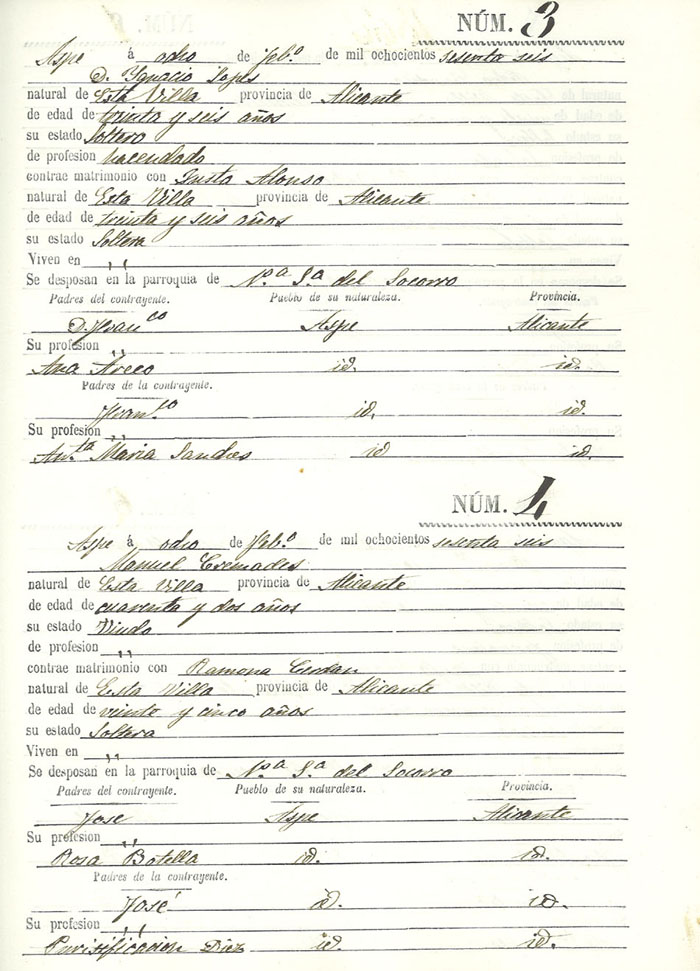 NÚM. 3
Aspe á ocho de Feb.º de mil ochocientos sesenta seis
D. Ygnacio Lopes
natural de Esta Villa provincia de Alicante
de edad de treinta y seis años
su estado Soltero
de profesion hacendado
contrae matrimonio con Justa Alonso
natural de Esta Villa provincia de Alicante
de edad de treinta y seis años
su estado Soltera
Viven en ,,
Se desposan en la parroquia de N.ª S.ª del Socorro
Padres del contrayente. Pueblo de su naturaleza. Provincia.
D. Fran.co Aspe Alicante
Su profesion ,,
Ana id. id.
Padres de la contrayente.
Fran.co id. id.
Su profesion ,,
An.ta Maria id id.
NÚM. 4
Aspe á ocho de Feb.º de mil ochocientos sesenta seis
Manuel Cremades
natural de Esta Villa provincia de Alicante
de edad de cuarenta y dos años
su estado Viudo
de profesion ,,
contrae matrimonio con Ramona Cerdan
natural de Esta Villa provincia de Alicante
de edad de veinte y cinco años
su estado Soltera
Viven en ,,
Se desposan en la parroquia de N.ª S.ª del Socorro
Padres del contrayente. Pueblo de su naturaleza. Provincia.
Jose Aspe Alicante
Su profesion ,,
Rosa Botella id. id.
Padres de la contrayente.
José id. id.
Su profesion ,,
Purisificacion Diez id. id.